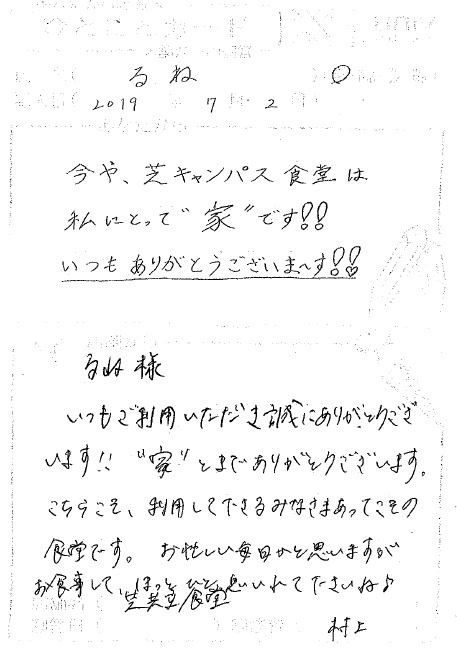 るね ○
2019 7 2
今や、芝キャンパス食堂は
私にとって“家”です!!
いつもありがとうございま〜す!!
るね様
いつもご利用いただき誠にありがとうござ
います!! “家”とまでありがとうございます。
こちらこそ、利用して下さるみなさまあってこその
食堂です。 お忙しい毎日かと思いますが
お食事して、ほっとひと息いれて下さいね♪
芝共立食堂
村上